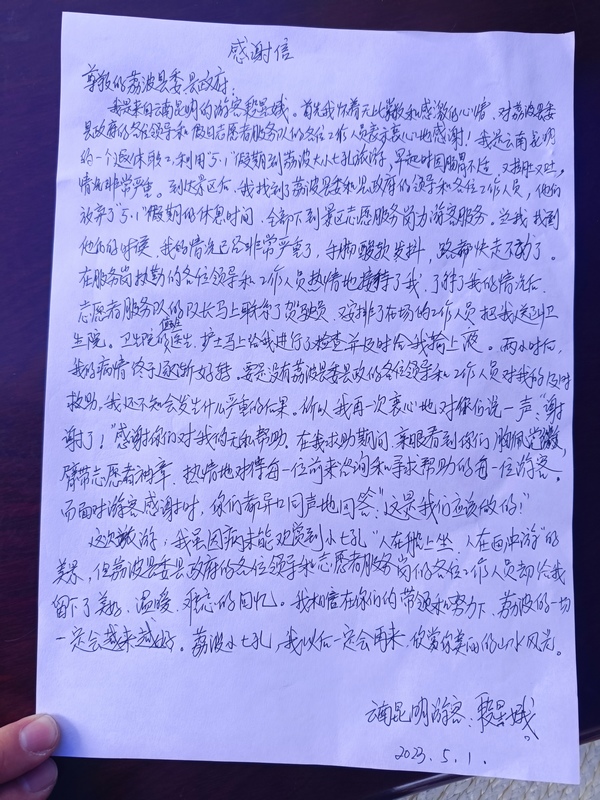 感谢信
尊敬的荔波县委县政府：
我是来自云南昆明的游客黎星娥。首先我怀着无比崇敬和感激的心情，对荔波县委
县政府的各位领导和假日志愿者服务队的各位工作人员表示衷心地感谢！我是云南昆明
的一个退休职工，利用“5.1”假期到荔波大小七孔旅游，早起时因肠胃不适，又拉肚又吐，
情况非常严重。到达景区后，我找到了荔波县委和县政府的领导和各位工作人员，他们
放弃了“5.1”假期的休息时间，全部下到景区志愿服务岗为游客服务。当我找到
他们的时候，我的情况已经非常严重了，手脚酸软发抖，路都快走不动了。
在服务岗执勤的各位领导和工作人员热情地接待了我，了解了我的情况后，
志愿者服务队的队长马上联系了驾驶员，又安排了在场的工作人员把我送到卫
生院。卫生院的值班医生、护士马上给我进行了检查并及时给我输上液。两小时后，
我的病情终于逐渐好转，要是没有荔波县委县政府的各位领导和工作人员对我的及时
救助，我还不知会发生什么严重的后果，所以我再一次衷心地对你们说一声：“谢
谢了！”感谢你们对我的无私帮助。在我求助期间，亲眼看到你们胸佩党徽，
臂带志愿者袖章，热情地对待每一位前来咨询和寻求帮助的每一位游客。
而面对游客感谢时，你们都异口同声地回答：“这是我们应该做的！”
这次旅游，我虽因病未能欣赏到小七孔“人在桥上坐，人在画中游”的
美景，但荔波县委县政府的各位领导和志愿者服务岗位的各位工作人员却给我
留下了美好、温暖、难忘的回忆。我相信在你们的带领和努力下，荔波的一切
一定会越来越好。荔波小七孔，我以后一定会再来欣赏你美丽的山水风光。
云南昆明游客：黎星娥
2023.5.1.